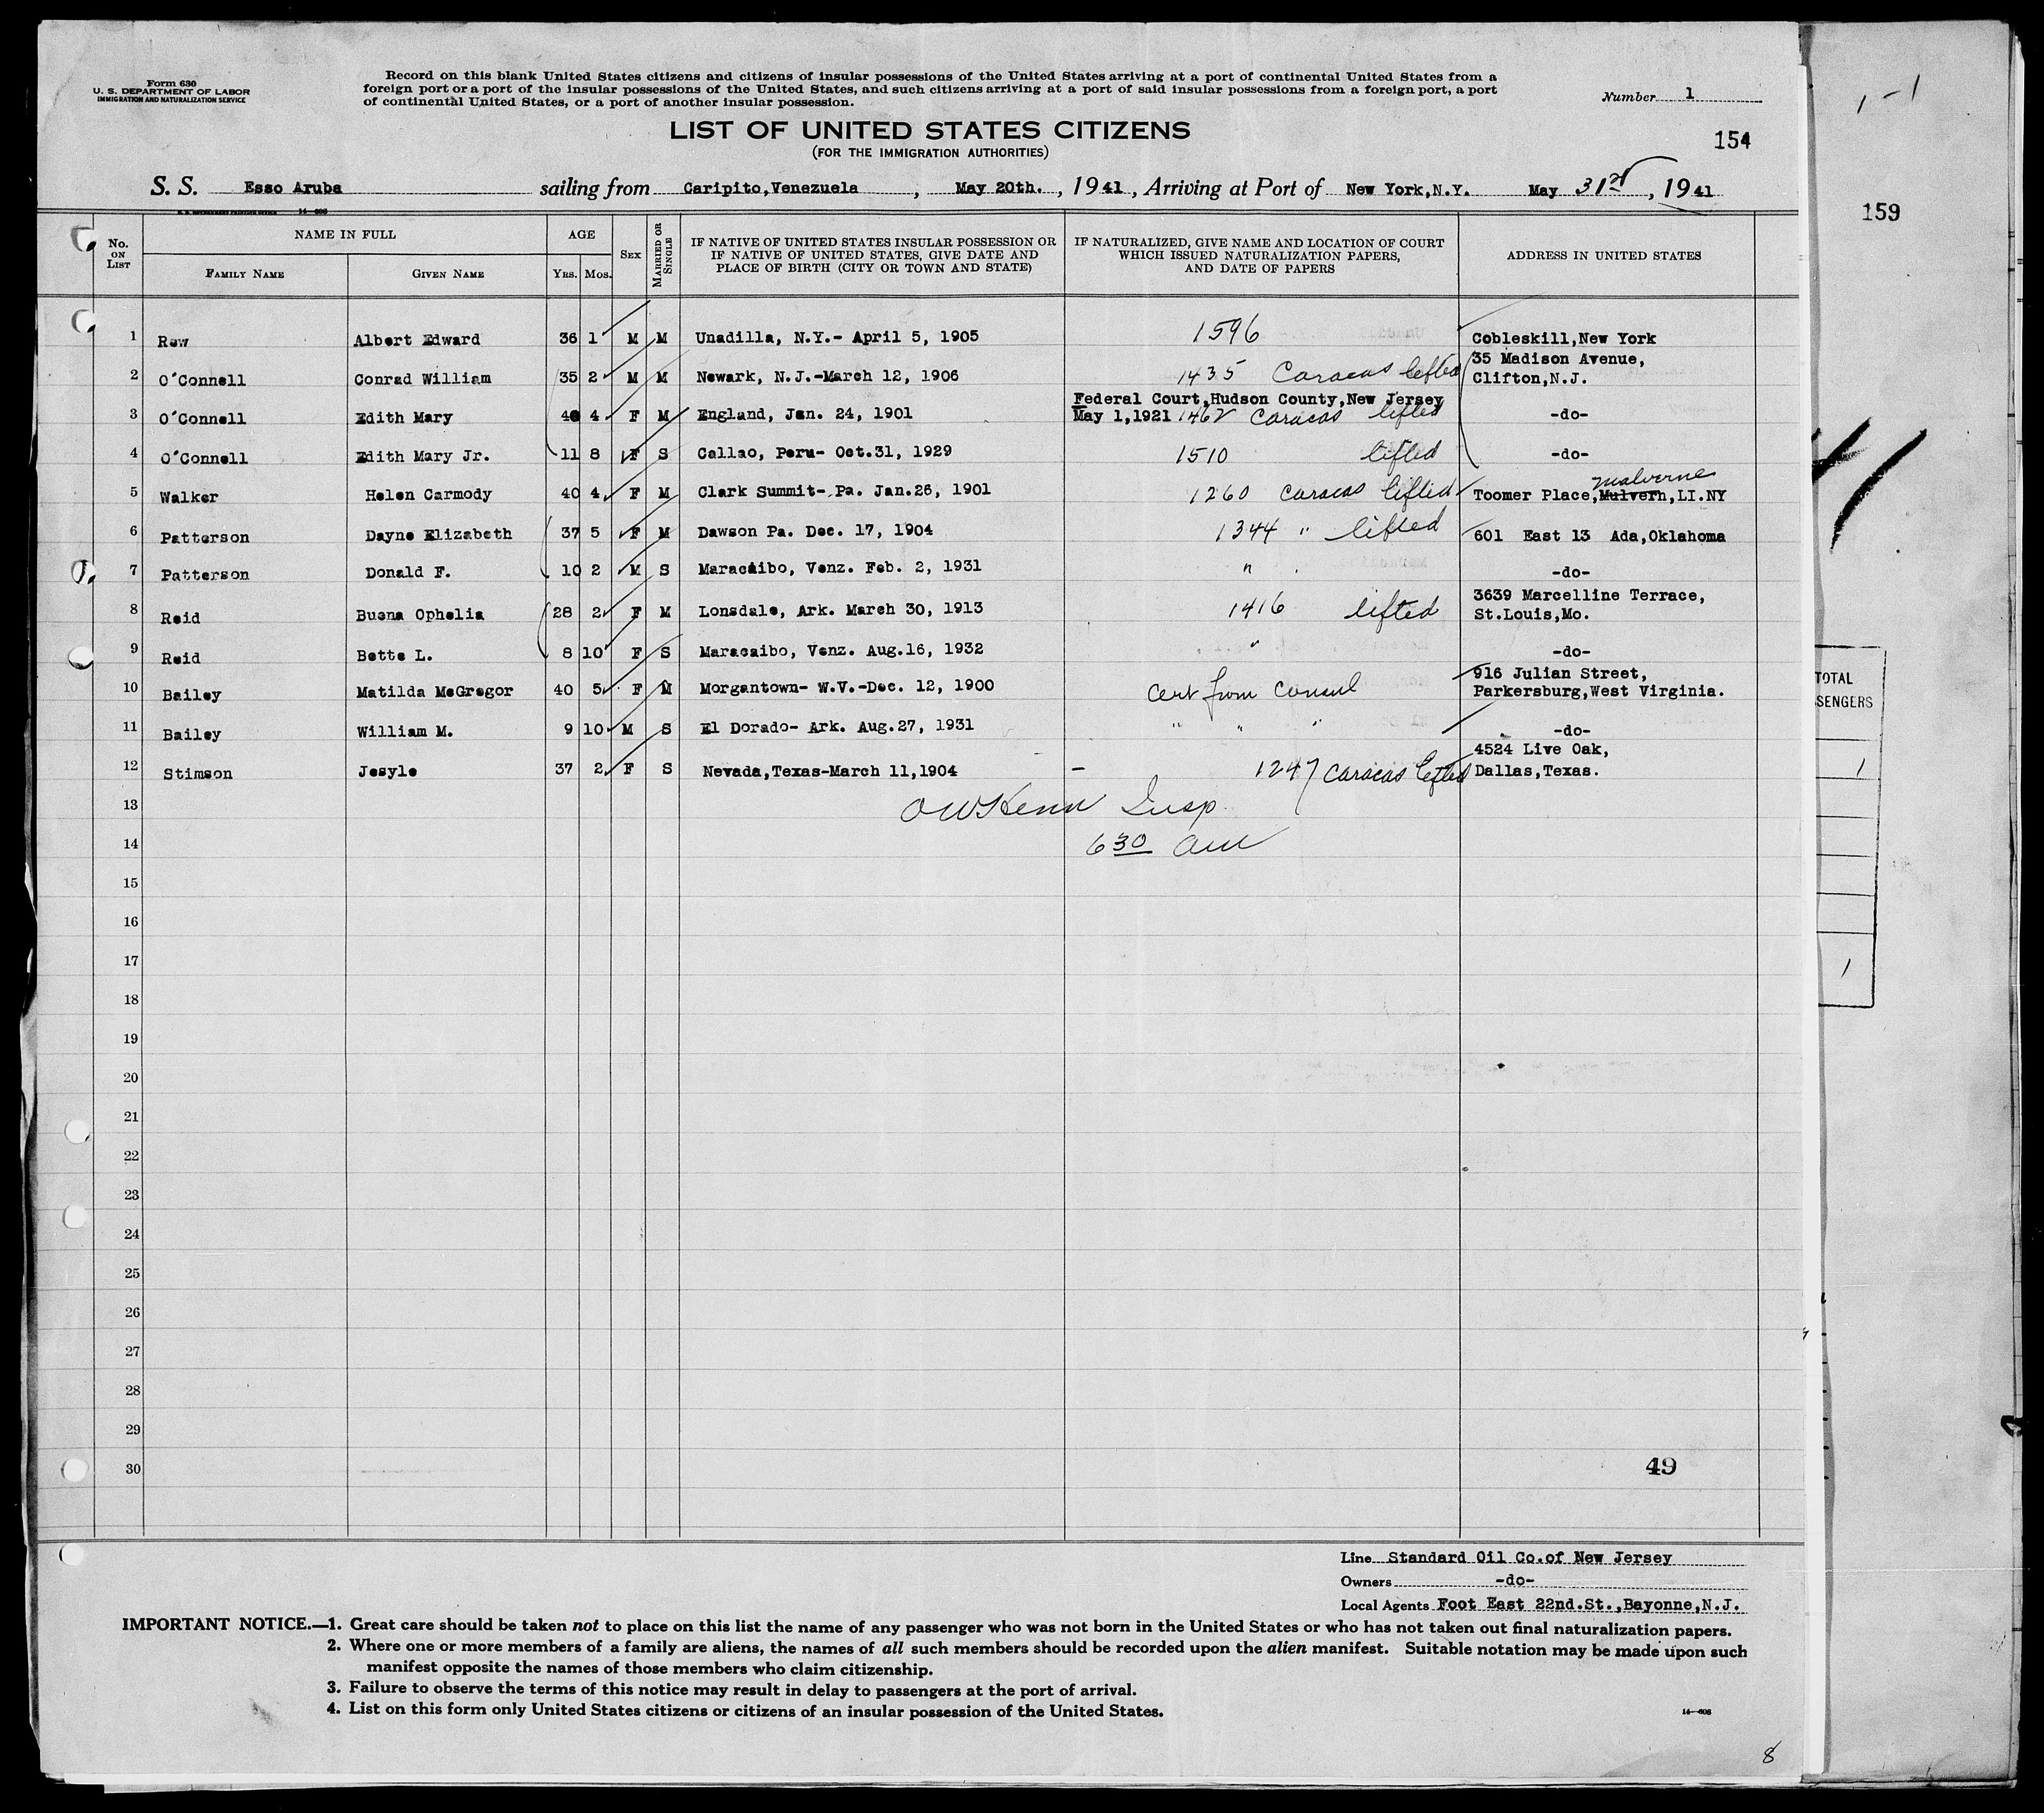 Form 630
U. S. DEPARTMENT OF LABOR
IMMIGRATION AND NATURALIZATION SERVICE
Record on this blank United States citizens and citizens of insular possessions of the United States arriving at a port of continental United States from a
foreign port or a port of the insular possessions of the United States, and such citizens arriving at a port of said insular possessions from a foreign port, a port
of continental United States, or a port of another insular possession.
Number 1
1 - 1
LIST OF UNITED STATES CITIZENS
154
(FOR THE IMMIGRATION AUTHORITIES)
S. S. Esso Aruba sailing from Caripito,Venezuela , May 20th. , 1941 , Arriving at Port of New York,N.Y. May 31st , 1941
14—608
159
No. ON LIST
NAME IN FULL
FAMILY NAME
GIVEN NAME
AGE
YRS. MOS.
SEX
MARRIED OR SINGLE
IF NATIVE OF UNITED STATES INSULAR POSSESSION OR
IF NATIVE OF UNITED STATES, GIVE DATE AND
PLACE OF BIRTH (CITY OR TOWN AND STATE)
IF NATURALIZED, GIVE NAME AND LOCATION OF COURT
WHICH ISSUED NATURALIZATION PAPERS,
AND DATE OF PAPERS
ADDRESS IN UNITED STATES
1 Row Albert Edward 36 1 M M Unadilla, N.Y.- April 5, 1905 1596 Cobleskill,New York
2 O'Connell Conrad William 35 2 M M Newark, N.J.-March 12, 1906 1435 Caracas lifted 35 Madison Avenue,
Clifton,N.J.
3 O'Connell Edith Mary 40 4 F M England, Jan. 24, 1901 Federal Court,Hudson County,New Jersey
May 1,1921 1462 Caracas lifted -do-
4 O'Connell Edith Mary Jr. 11 8 F S Callao, Peru- Oct.31, 1929 1510 lifted -do-
5 Walker Helen Carmody 40 4 F M Clark Summit- Pa. Jan.26, 1901 1260 Caracas lifted Toomer Place,Mulvern,LI.NY
Malverne
6 Patterson Dayne Elizabeth 37 5 F M Dawson Pa. Dec. 17, 1904 1344 " lifted 601 East 13 Ada,Oklahoma
7 Patterson Donald F. 10 2 M S Maracaibo, Venz. Feb. 2, 1931 " -do-
8 Reid Buena Ophelia 28 2 F M Lonsdale, Ark. March 30, 1913 1416 lifted 3639 Marcelline Terrace,
St.Louis,Mo.
9 Reid Bette L. 8 10 F S Maracaibo, Venz. Aug.16, 1932 " -do-
10 Bailey Matilda McGregor 40 5 F M Morgantown- W.V.-Dec. 12, 1900 Cert from Consul 916 Julian Street,
Parkersburg,West Virginia.
11 Bailey William M. 9 10 M S El Dorado- Ark. Aug.27, 1931 " " " -do-
12 Stimson Jesyle 37 2 F S Nevada,Texas-March 11,1904 - 1247 Caracas lifted 4524 Live Oak,
Dallas,Texas.
13 Insp
14 6 30 am
15
16
17
18
19
20
21
22
23
24
25
26
27
28
29
30
49
TOTAL
SENGERS
1
1
Line Standard Oil Co.of New Jersey
Owners -do-
Local Agents Foot East 22nd.St.,Bayonne,N.J.
IMPORTANT NOTICE.—1. Great care should be taken not to place on this list the name of any passenger who was not born in the United States or who has not taken out final naturalization papers.
2. Where one or more members of a family are aliens, the names of all such members should be recorded upon the alien manifest. Suitable notation may be made upon such
manifest opposite the names of those members who claim citizenship.
3. Failure to observe the terms of this notice may result in delay to passengers at the port of arrival.
4. List on this form only United States citizens or citizens of an insular possession of the United States.
14—608
8